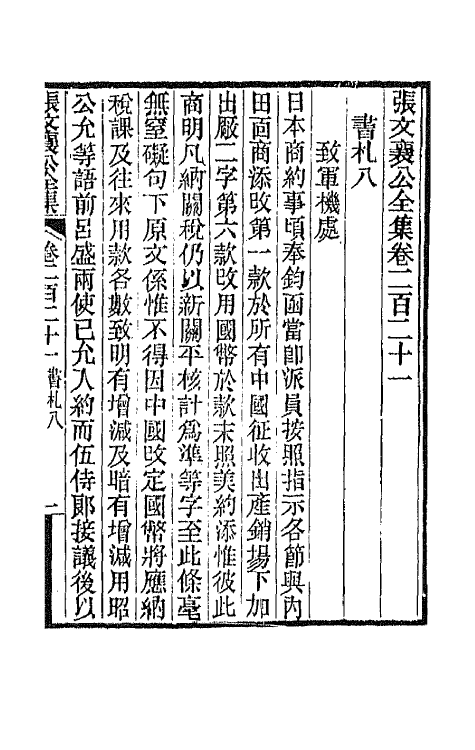 張文襄公全集卷二百二十一
書札八
致軍機處
日本商約事頃奉鈞函當卽派員按照指示各節與內
田面商添改第一款於所有中國征收出產銷塲下加
出廠二字第六款改用國幣於款末照美約添惟彼此
商明凡納關稅仍以新關平核計爲準等字至此條毫
無窒礙句下原文係惟不得因中國改定國幣將應納
稅課及往來用款各數致明有增減及暗有增減用昭
公允等語前呂盛兩使已允入約而伍侍郞接議後以
張文襄公全集 卷二百二十一 書札八 一